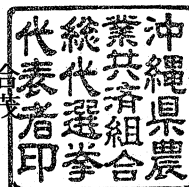 沖縄県農
業共済組合
総代選挙
代表者印